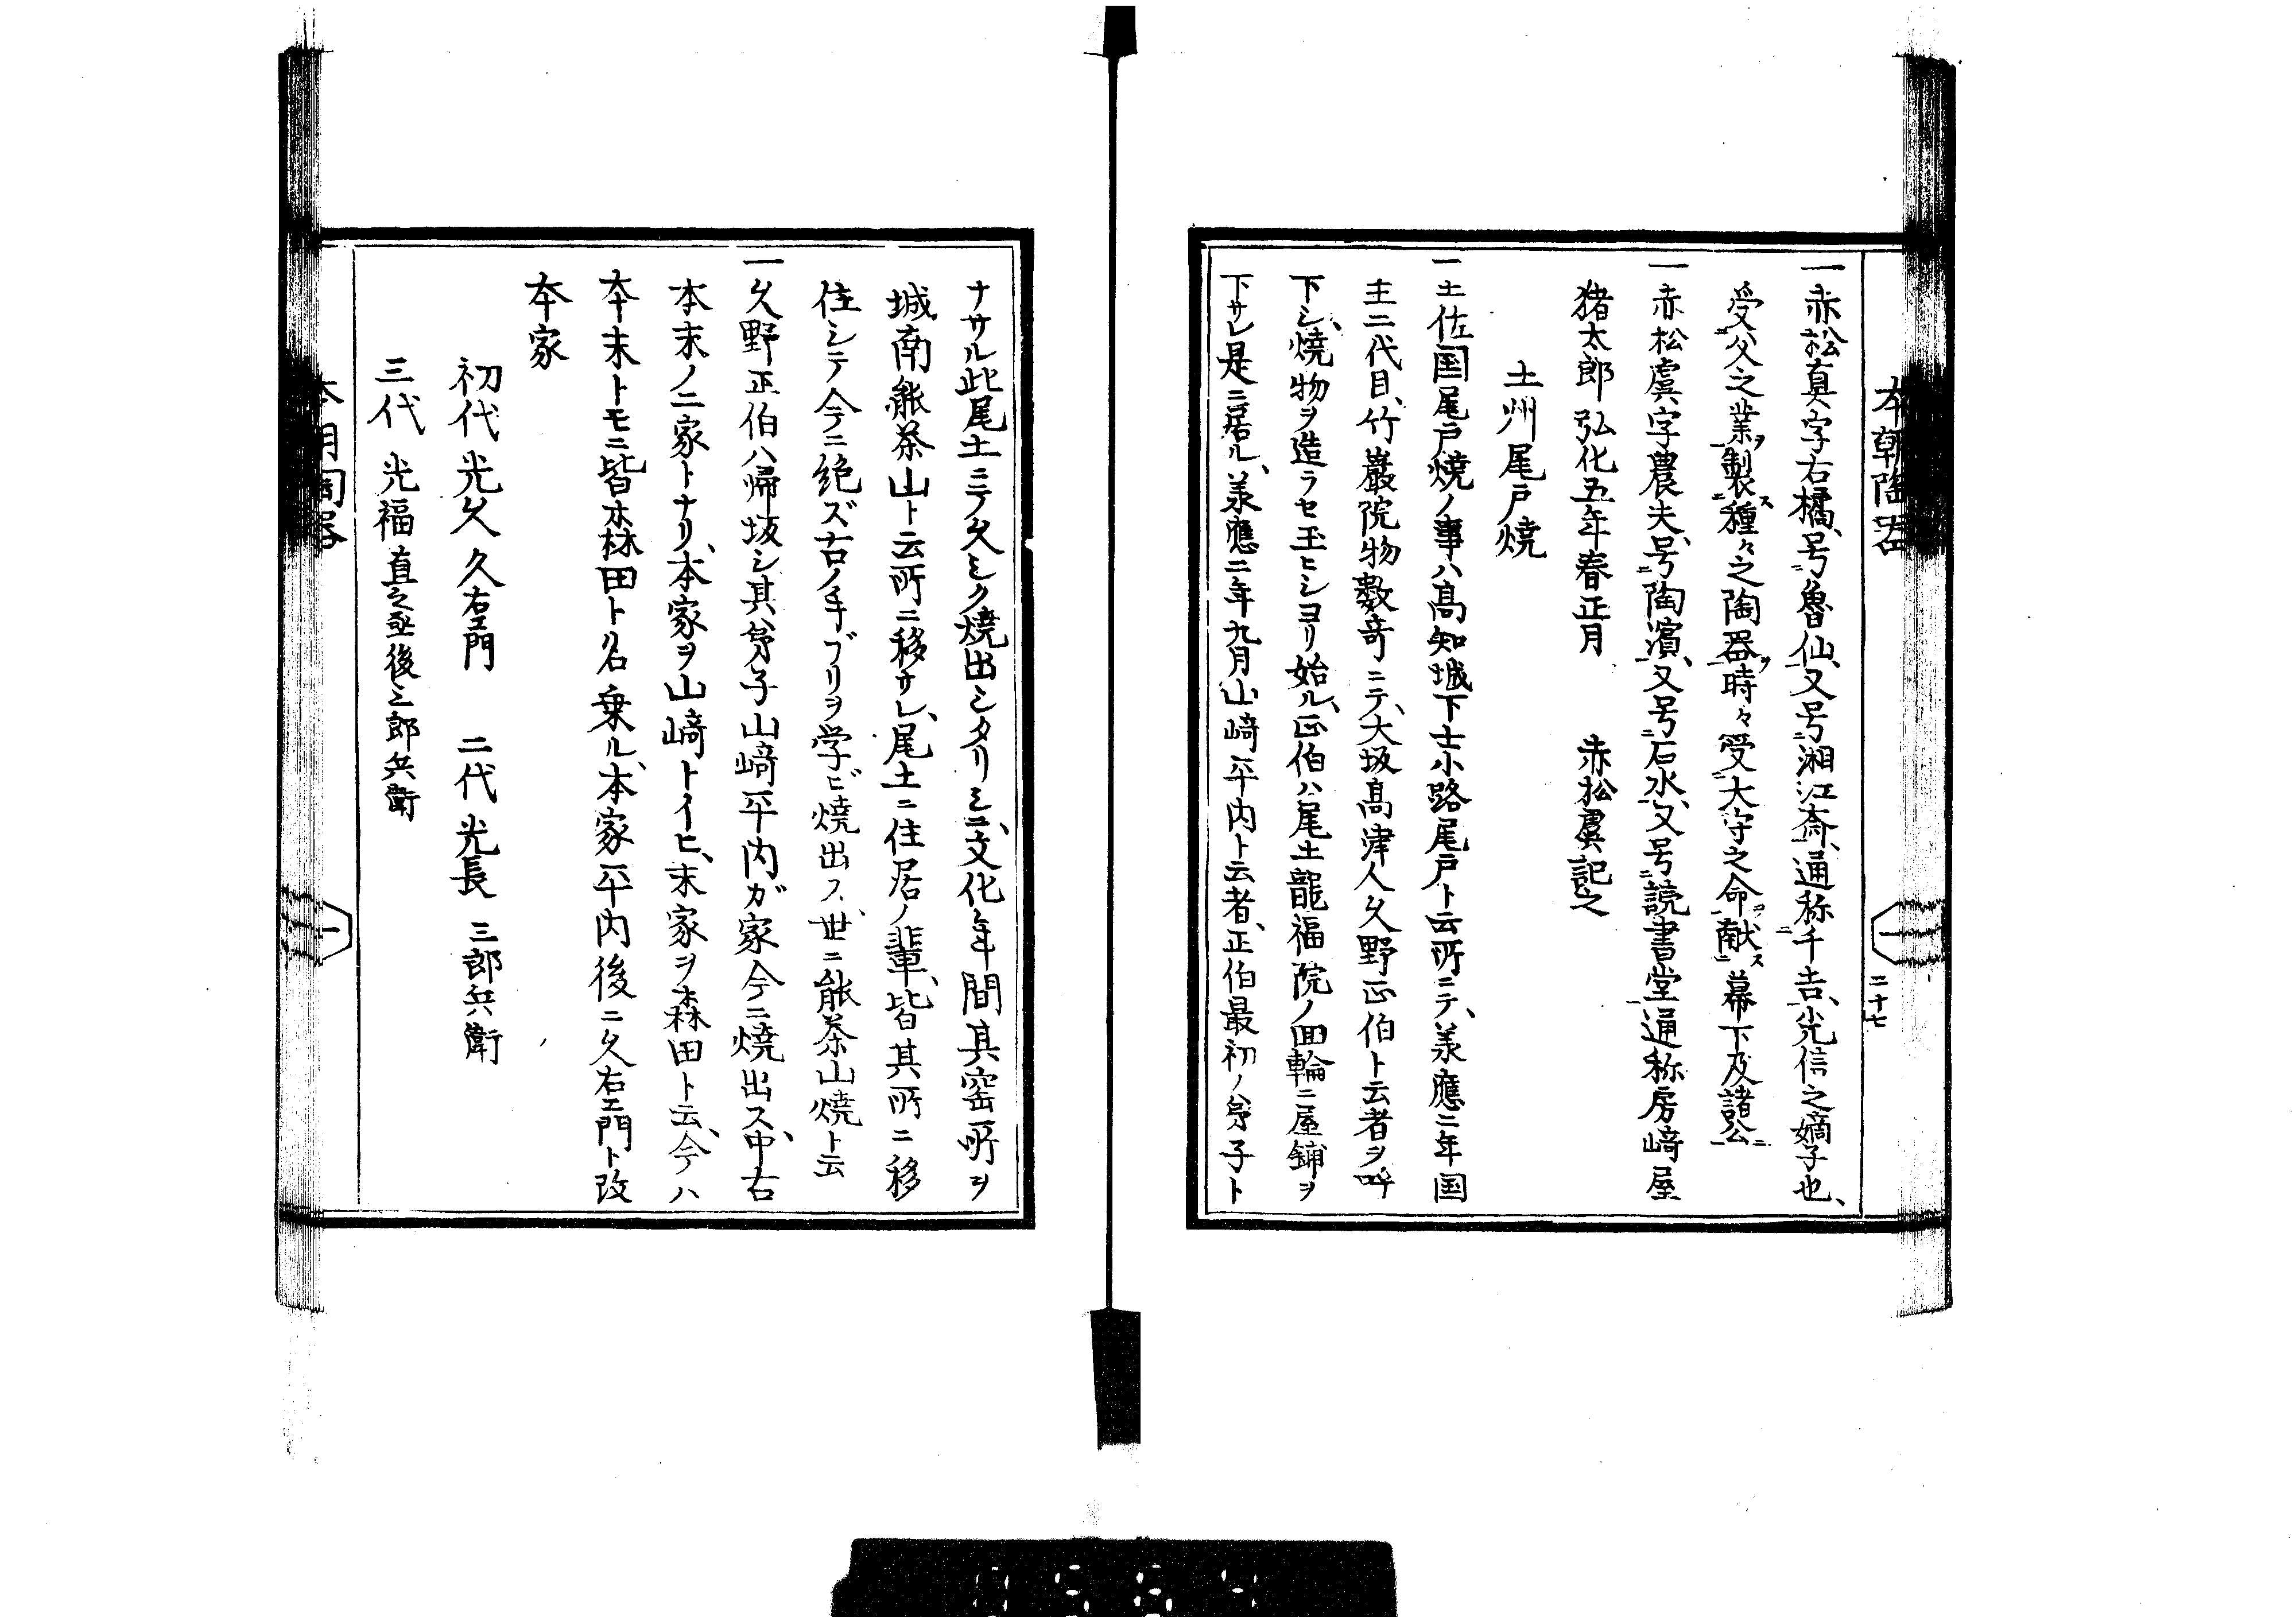 本朝陶器
二十七
一赤松真字右橘、号魯仙、又号湘江斎、通称千吉、光信之嫡子也、
受父之業ヲ製ス種々之陶器ヲ時々受大守之命ヲ献ス幕下及諸公ニ
一赤松虞字農夫、号陶濱、又号石水、又号読書堂通称房﨑屋
猪太郎 弘化五年春正月 赤松虞記之
土州尾戸焼
一土佐国尾戸焼ノ事ハ高知城下士小路尾戸ト云所ニテ、承應二年国
主二代目、竹巌院物数奇ニテ、大坂高津人久野正伯ト云者ヲ呼
下シ、焼物ヲ造ラセ玉ヒシヨリ始ル、正伯ハ尾土龍福院ノ囬輪ニ屋鋪ヲ
下サレ是ニ居ル、承應二年九月山﨑平内ト云者、正伯最初ノ弟子ト
ナサル此尾土ニテ久シク焼出シタリシニ、文化年間其窑所ヲ
城南能茶山ト云所ニ移サレ、尾土ニ住居ノ輩、皆其所ニ移
住シテ今ニ絶ズ古ノ手ブリヲ学ビ焼出ス、世ニ能茶山焼ト云
一久野正伯ハ帰坂シ其弟子山﨑平内ガ家今ニ焼出ス、中右
本末ノ二家トナリ、本家ヲ山﨑トイヒ、末家ヲ森田ト云、今ハ
本末トモニ皆森田ト名乗ル、本家平内後ニ久右エ門ト改
本家
初代 光久 久右エ門 二代 光長 三郎兵衛
三代 光福 直之丞後三郎兵衛